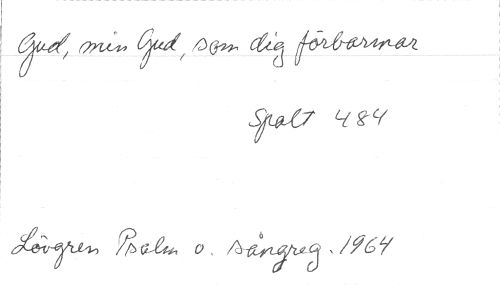 Gud, min Gud, som dig förbarmar
Spalt 484
Lövgren Psalm o. sångreg. 1964